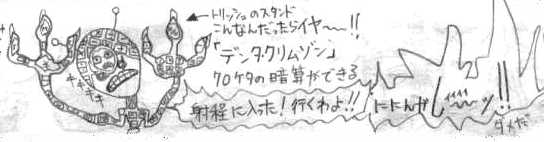 ←トリッシュのスタンド
こんなんだったらイヤ〜〜!!
「デンタ・クリムゾン」
70ケタの暗算ができる
ギギギギ
射程に入った!行くわよ!!
ににんが
し〜〜ッ!!
ダメだ